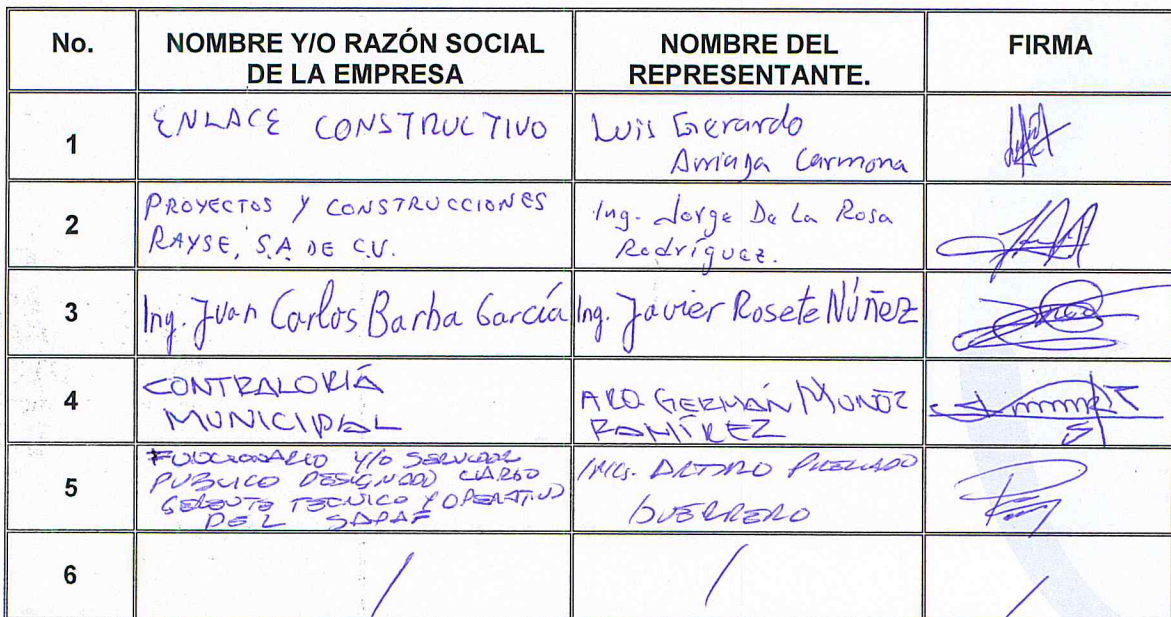 No. NOMBRE Y/O RAZÓN SOCIAL DE LA EMPRESA NOMBRE DEL REPRESENTANTE. FIRMA
1
ENLACE CONSTRUCTIVO
Luis Gerardo
Arriaga Carmona
2
PROYECTOS Y CONSTRUCCIONES
RAYSE, S.A DE C.V.
Ing. Jorge De La Rosa
Rodríguez.
3
Ing. Juan Carlos Barba García
Ing. Javier Rosete Núñez
4
CONTRALORIÁ
MUNICIPAL
ARQ. GERMÁN MUÑOZ
RAMÍREZ
5
FUNCIONARIO Y/O SERVIDOR
PUBLICO DESIGNADO CARGO
GERENTE TECNICO Y OPERATIVO
DEL SAPAF
ARTURO PRECIADO
GUERRERO
6
/ / /